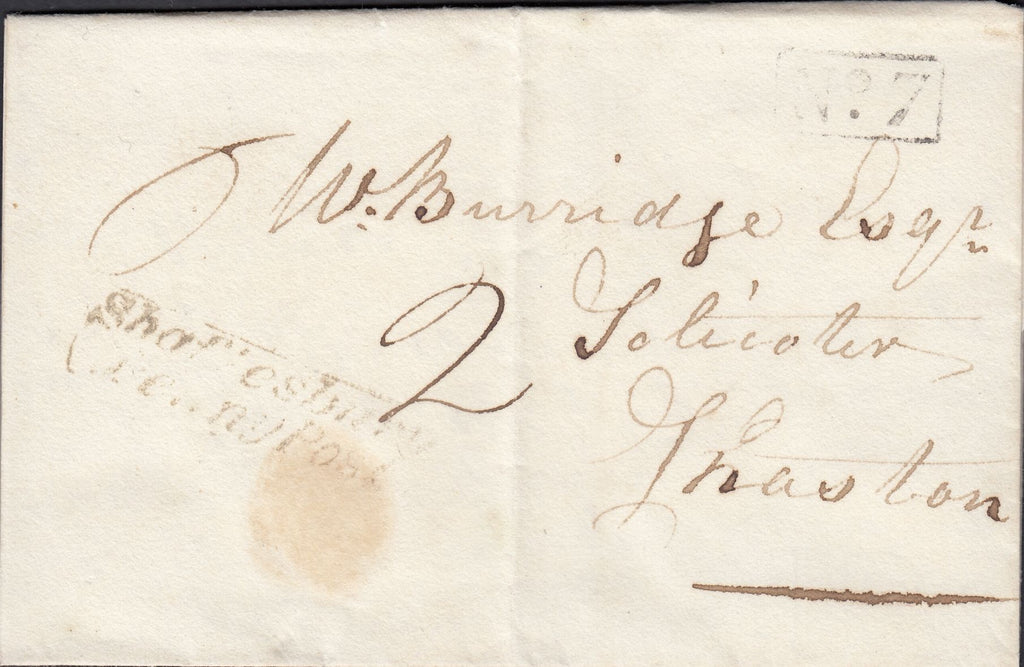 No. 7
Wm. Burridge Esqr.
2
Soliciter
Shaston
Shaftesbury
Penny Post